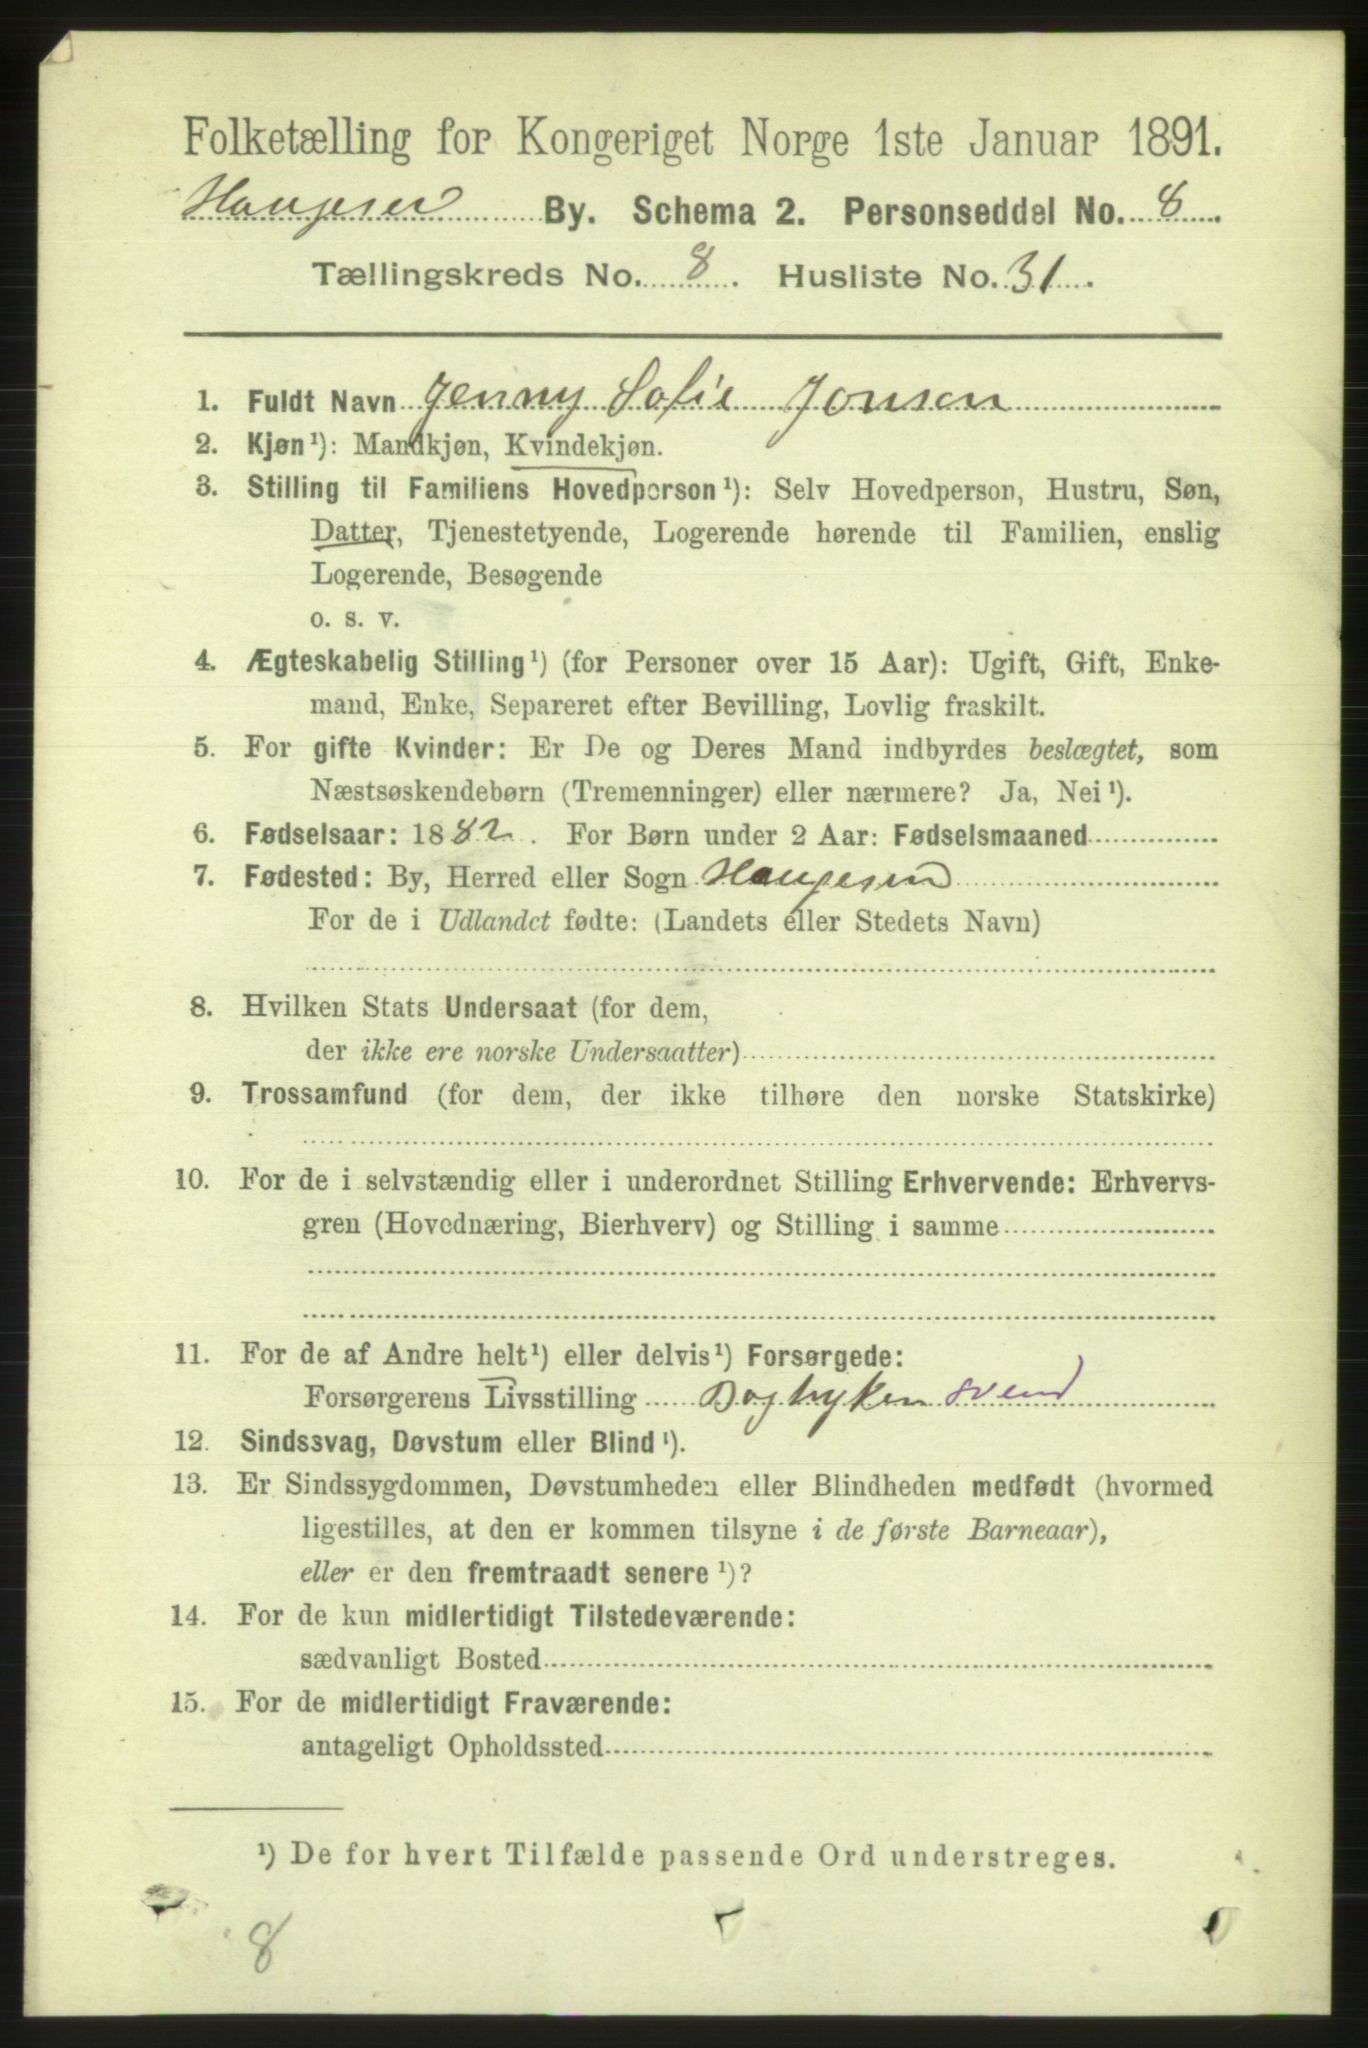 Folketælling for Kongeriget Norge 1ste Januar 1891.
Haugesu By. Schema 2. Personseddel No. 8.
Tællingskreds No. 8. Husliste No. 31.
1. Fuldt Navn Jenny Sofie Jonsen
2. Kjøn¹): Mandkjøn, Kvindekjøn.
3. Stilling til Familiens Hovedperson¹): Selv Hovedperson, Hustru, Søn,
Datter, Tjenestetyende, Logerende hørende til Familien, enslig
Logerende, Besøgende
o. s. v.
4. Ægteskabelig Stilling¹) (for Personer over 15 Aar): Ugift, Gift, Enke-
mand, Enke, Separeret efter Bevilling, Lovlig fraskilt.
5. For gifte Kvinder: Er De og Deres Mand indbyrdes beslægtet, som
Næstsøskendebørn (Tremenninger) eller nærmere? Ja, Nei¹).
6. Fødselsaar: 1882. For Børn under 2 Aar: Fødselsmaaned
7. Fødested: By, Herred eller Sogn Haugesund
For de i Udlandet fødte: (Landets eller Stedets Navn)
8. Hvilken Stats Undersaat (for dem,
der ikke ere norske Undersaatter)
9. Trossamfund (for dem, der ikke tilhøre den norske Statskirke)
10. For de i selvstændig eller i underordnet Stilling Erhvervende: Erhvervs-
gren (Hovednæring, Bierhverv) og Stilling i samme
11. For de af Andre helt¹) eller delvis¹) Forsørgede:
Forsørgerens Livsstilling Bogtyken svend
12. Sindssvag, Døvstum eller Blind¹).
13. Er Sindssygdommen, Døvstumheden eller Blindheden medfødt (hvormed
ligestilles, at den er kommen tilsyne i de første Barneaar),
eller er den fremtraadt senere¹)?
14. For de kun midlertidigt Tilstedeværende:
sædvanligt Bosted
15. For de midlertidigt Fraværende:
antageligt Opholdssted
¹) De for hvert Tilfælde passende Ord understreges.
8